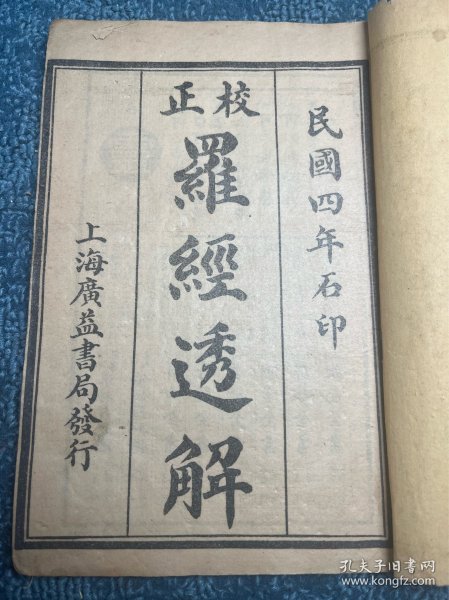 民國四年石印
校正
羅經透解
上海廣益書局發行
孔夫子旧书网
www.kongfz.com